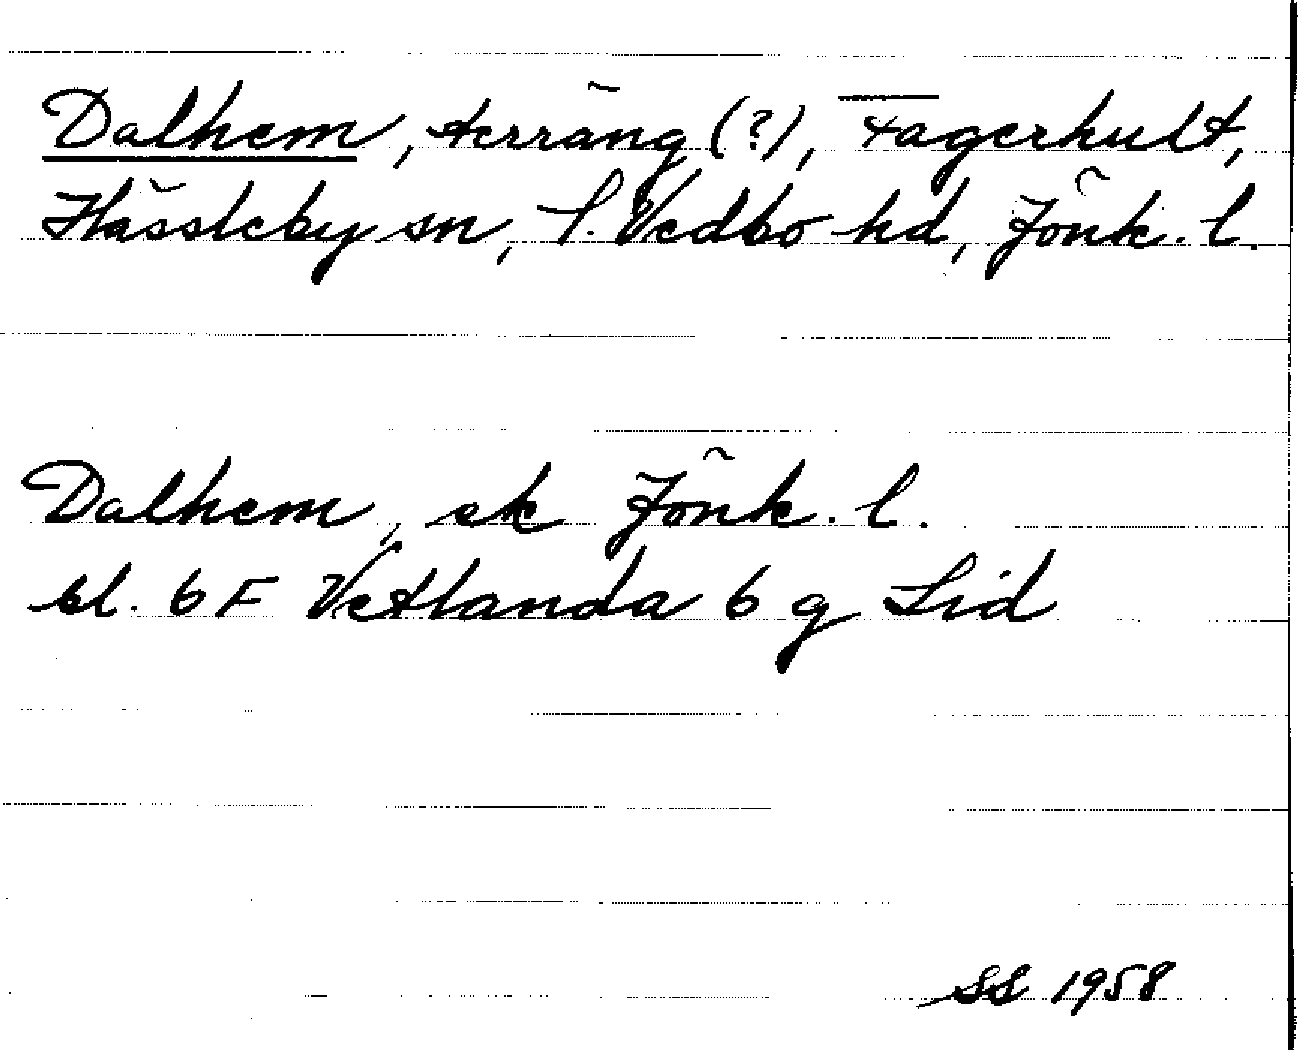 Dalhem, terräng (?), Fagerhult,
Hässleby sn, S. Vedbo hd, Jönk. l.
Dalhem, ek Jönk. l.
bl. 6 F Vetlanda 6 g Lid
SS 1958